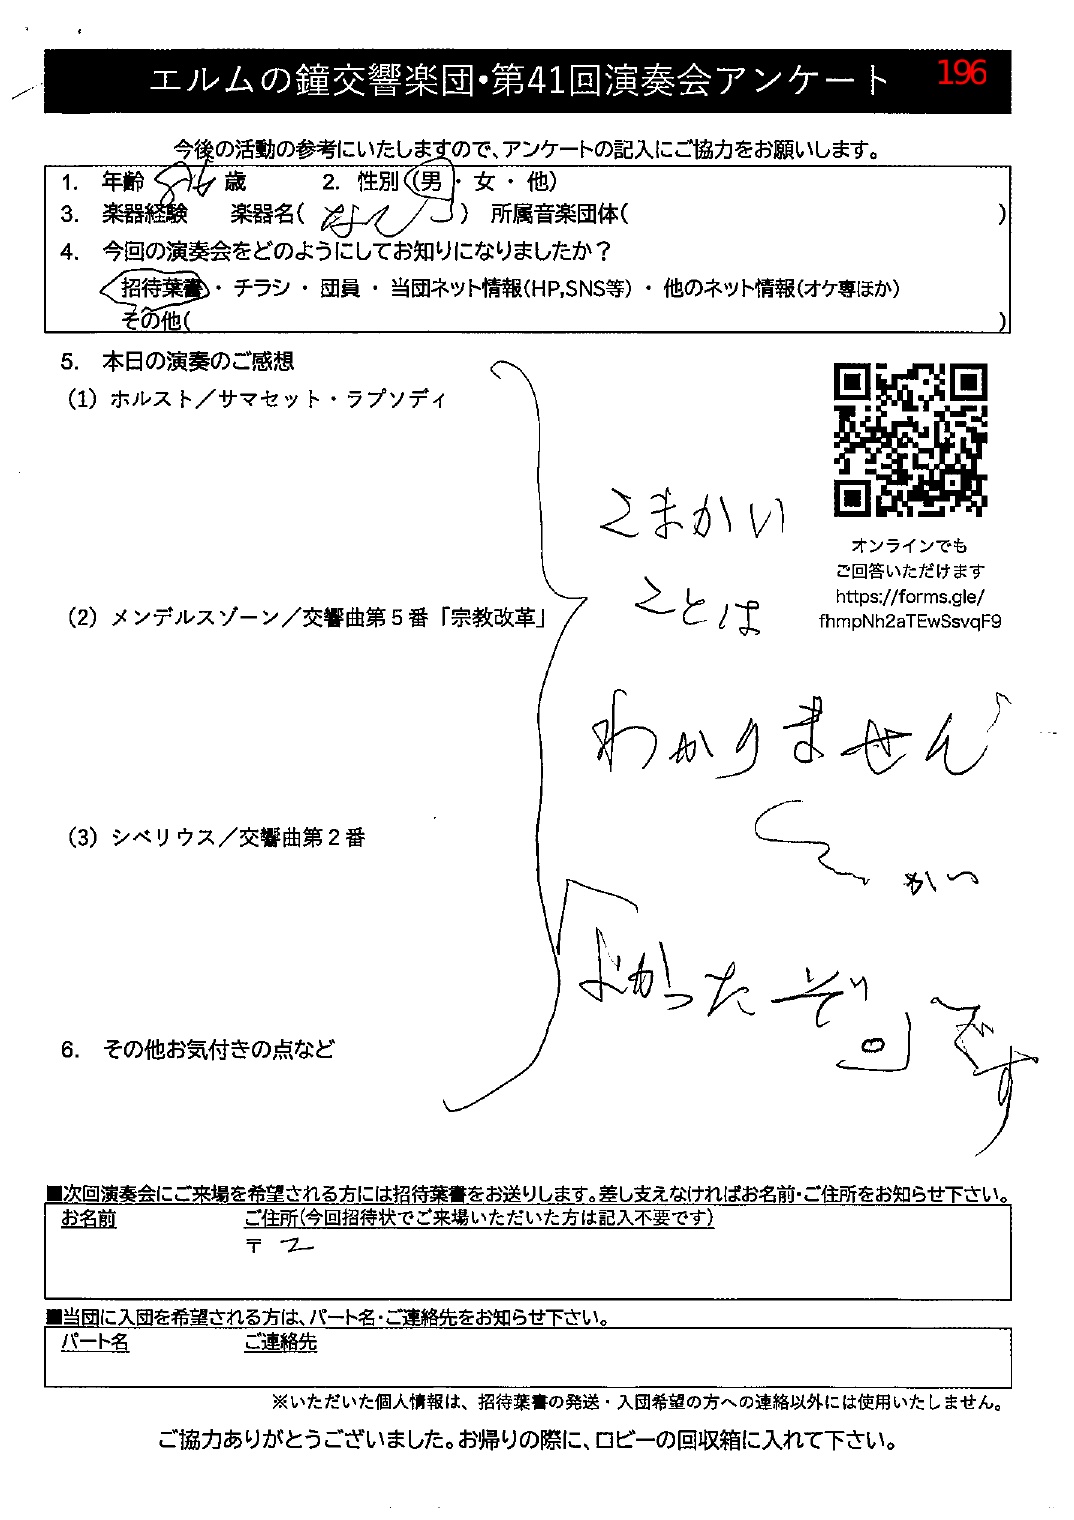 エルムの鐘交響楽団・第41回演奏会アンケート 196
今後の活動の参考にいたしますので、アンケートの記入にご協力をお願いします。
1. 年齢 86 歳 2. 性別 (男・女・他)
3. 楽器経験 楽器名( なし ) 所属音楽団体( )
4. 今回の演奏会をどのようにしてお知りになりましたか？
招待葉書・チラシ・団員・当団ネット情報(HP,SNS等)・他のネット情報(オケ専ほか)
その他( )
5. 本日の演奏のご感想
(1) ホルスト／サマセット・ラプソディ
こまかい
ことは
わかりません
オンラインでも
ご回答いただけます
https://forms.gle/
fhmpNh2aTEwSsvqF9
(2) メンデルスゾーン／交響曲第５番「宗教改革」
(3) シベリウス／交響曲第２番
「よかったぞ。」です
6. その他お気付きの点など
■次回演奏会にご来場を希望される方には招待葉書をお送りします。差し支えなければお名前・ご住所をお知らせ下さい。
お名前 ご住所(今回招待状でご来場いただいた方は記入不要です)
〒 2
■当団に入団を希望される方は、パート名・ご連絡先をお知らせ下さい。
パート名 ご連絡先
※いただいた個人情報は、招待葉書の発送・入団希望の方への連絡以外には使用いたしません。
ご協力ありがとうございました。お帰りの際に、ロビーの回収箱に入れて下さい。